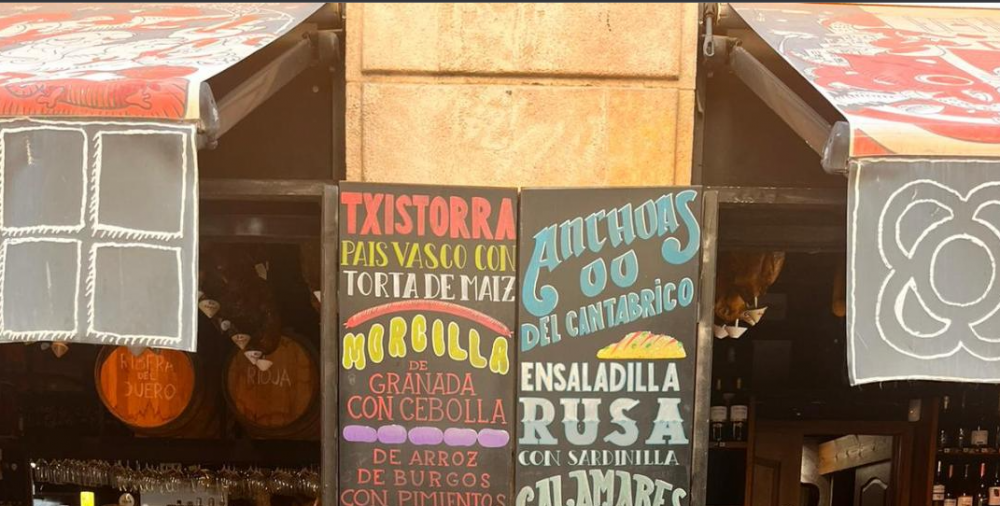 TXISTORRA
PAIS VASCO CON
TORTA DE MAIZ
MORCILLA
DE
GRANADA
CON CEBOLLA
DE ARROZ
DE BURGOS
CON PIMIENTOS
ANCHOAS
OO
DEL CANTABRICO
ENSALADILLA
RUSA
CON SARDINILLA
CALAMARES
RIBERA
DEL
DUERO
RIOJA